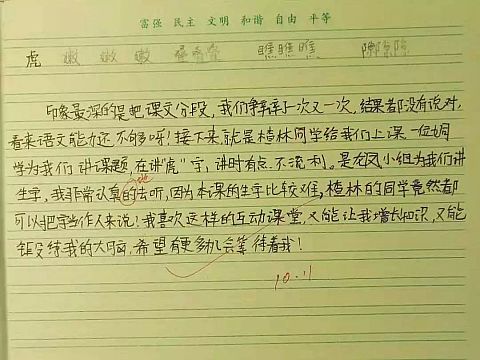 富强 民主 文明 和谐 自由 平等
虎 嫩 嫩 嫩 叠叠叠 瞧瞧瞧
印象最深的是把课文分段,我们争辩了一次又一次,结果都没有说对,
看来语文能力还不够呀!接下来,就是楂林同学给我们上课,一位
学为我们讲课题,在讲"虎"字,讲时有点不流利。是龙凤小组为我们讲
生字,我非常认真的去听,因为本课的生字比较难,楂林的同学竟然都
地
可以把字当作人来说!我喜欢这样的互动课堂,又能让我增长知识,又能
锻练我的大脑,希望有更多机会等待着我!
10.11